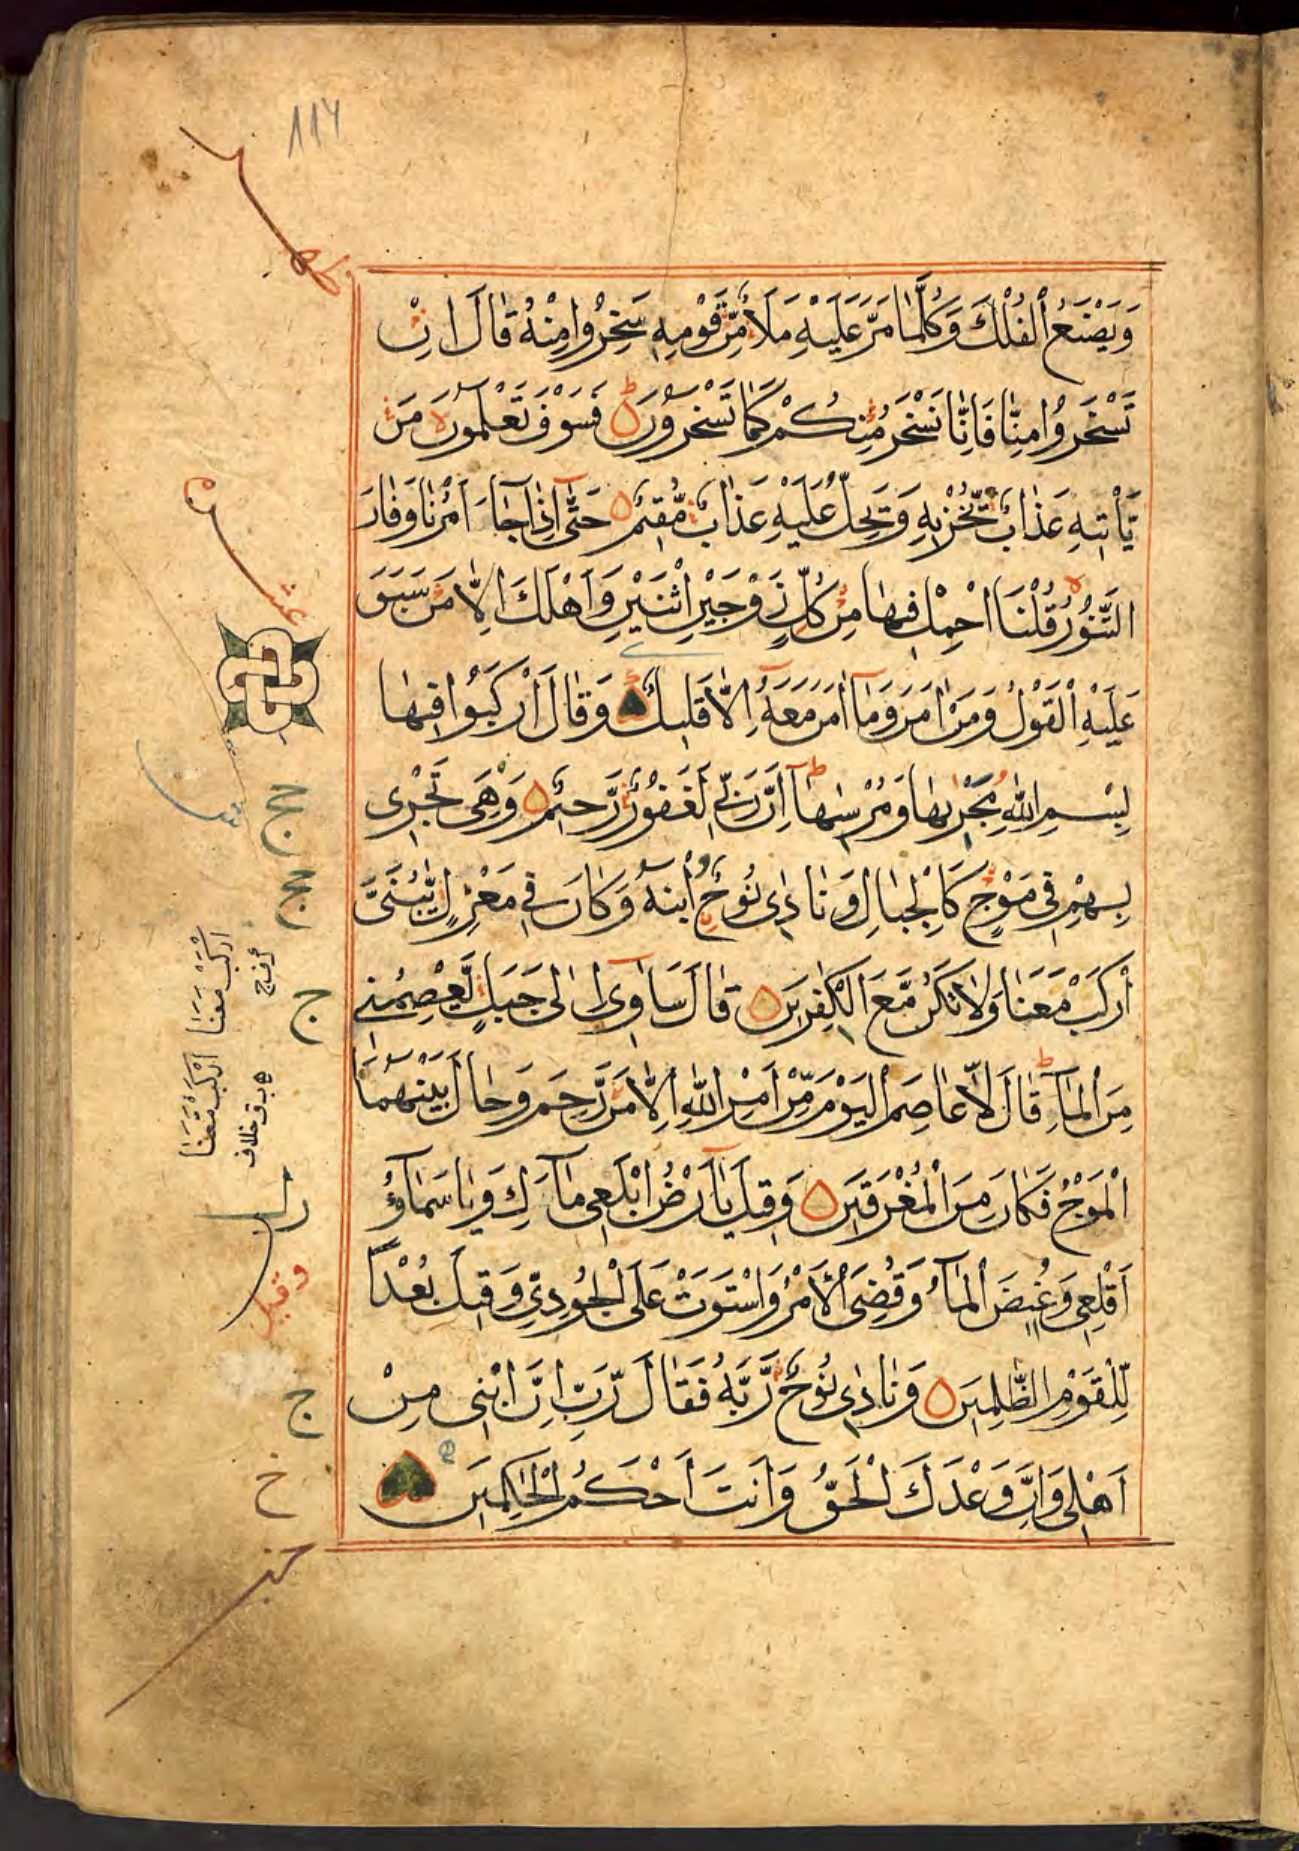 ١١٧
وَيَصْنَعُ الْفُلْكَ وَكُلَّمَا مَرَّ عَلَيْهِ مَلَأٌ مِّنْ قَوْمِهِ سَخِرُوا مِنْهُ قَالَ اِنْ
تَسْخَرُوا مِنَّا فَاِنَّا نَسْخَرُ مِنْكُمْ كَمَا تَسْخَرُونَ فَسَوْفَ تَعْلَمُونَ مَنْ
يَّأْتِيهِ عَذَابٌ يُّخْزِيهِ وَيَحِلُّ عَلَيْهِ عَذَابٌ مُّقِيمٌ حَتّٰى اِذَا جَآءَ اَمْرُنَا وَفَارَ
التَّنُّورُ قُلْنَا احْمِلْ فِيهَا مِنْ كُلٍّ زَوْجَيْنِ اثْنَيْنِ وَاَهْلَكَ اِلَّا مَنْ سَبَقَ
عَلَيْهِ الْقَوْلُ وَمَنْ اٰمَنَ وَمَآ اٰمَنَ مَعَهٗ اِلَّا قَلِيلٌ وَقَالَ ارْكَبُوا فِيهَا
بِسْمِ اللّٰهِ مَجْرٖىهَا وَمُرْسٰىهَا اِنَّ رَبِّي لَغَفُورٌ رَّحِيمٌ وَهِيَ تَجْرِي
بِهِمْ فِي مَوْجٍ كَالْجِبَالِ وَنَادٰى نُوحٌ ابْنَهٗ وَكَانَ فِي مَعْزِلٍ يّٰبُنَيَّ
ارْكَبْ مَعَنَا وَلَا تَكُنْ مَّعَ الْكٰفِرِينَ قَالَ سَاٰوِي اِلٰى جَبَلٍ يَّعْصِمُنِي
مِنَ الْمَآءِ قَالَ لَا عَاصِمَ الْيَوْمَ مِنْ اَمْرِ اللّٰهِ اِلَّا مَنْ رَّحِمَ وَحَالَ بَيْنَهُمَا
الْمَوْجُ فَكَانَ مِنَ الْمُغْرَقِينَ وَقِيلَ يَآ اَرْضُ ابْلَعِي مَآءَكِ وَيَا سَمَآءُ
اَقْلِعِي وَغِيضَ الْمَآءُ وَقُضِيَ الْاَمْرُ وَاسْتَوَتْ عَلَى الْجُودِيِّ وَقِيلَ بُعْدًا
لِّلْقَوْمِ الظّٰلِمِينَ وَنَادٰى نُوحٌ رَّبَّهٗ فَقَالَ رَبِّ اِنَّ ابْنِي مِنْ
اَهْلِي وَاِنَّ وَعْدَكَ الْحَقُّ وَاَنْتَ اَحْكَمُ الْحَاكِمِينَ
ارْكَبْ مَعَنَا
ارْكَبْ مَّعَنَا
خلاف
ج
وقيل
ج